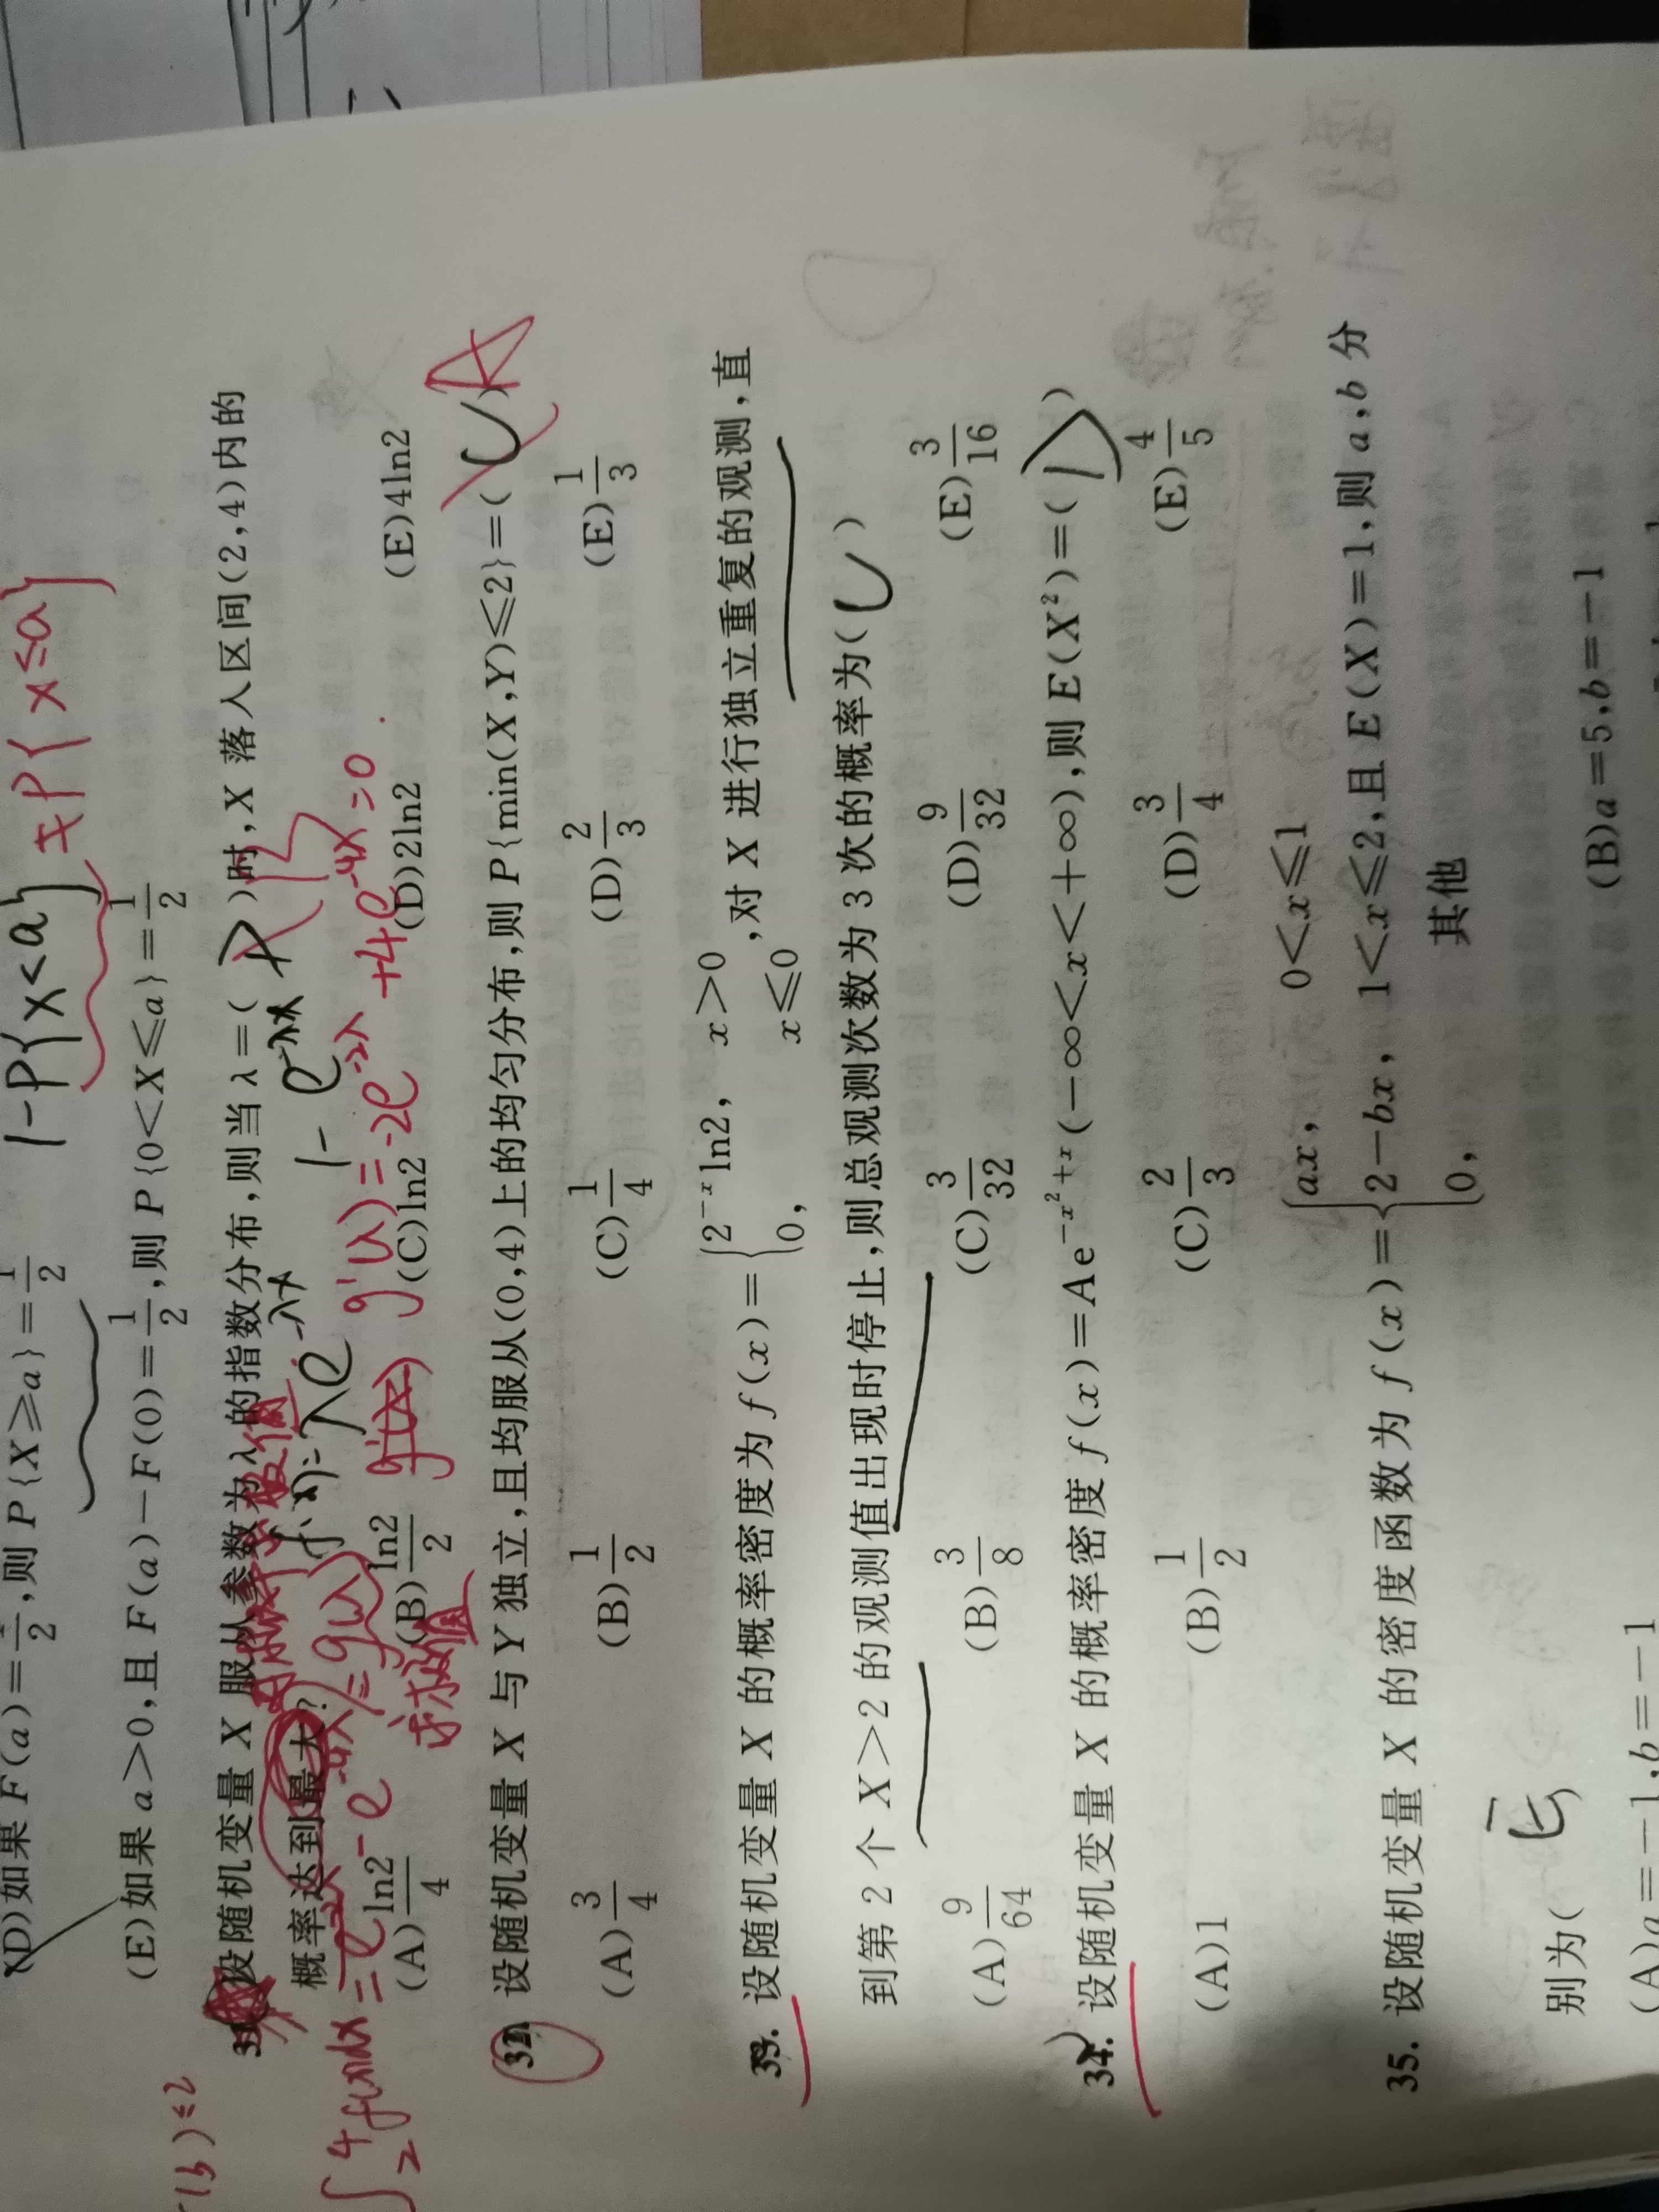 1-P{x<a} ≠P{x≤a}
(D)如果 F(a)=1/2,则 P{X≥a}=1/2
(E)如果 a>0,且 F(a)-F(0)=1/2,则 P{0<X≤a}=1/2
31. 设随机变量 X 服从参数为 λ 的指数分布,则当 λ=( )时,X 落入区间(2,4)内的
概率达到最大?
1-e^{-λx}
(A)ln2/4 (B)ln2/2 (C)ln2 (D)2ln2 (E)4ln2
g'(λ)=-2e^{-2λ}+4e^{-4λ}=0
求极值
32. 设随机变量 X 与 Y 独立,且均服从(0,4)上的均匀分布,则 P{min(X,Y)≤2}=( C ) A
(A)3/4 (B)1/2 (C)1/4 (D)2/3 (E)1/3
33. 设随机变量 X 的概率密度为 f(x)={2^{-x}ln2, x>0
0, x≤0 ,对 X 进行独立重复的观测,直
到第 2 个 X>2 的观测值出现时停止,则总观测次数为 3 次的概率为( C )
(A)9/64 (B)3/8 (C)3/32 (D)9/32 (E)3/16
34. 设随机变量 X 的概率密度 f(x)=Ae^{-x²+x}(-∞<x<+∞),则 E(X²)=( D )
(A)1 (B)1/2 (C)2/3 (D)3/4 (E)4/5
35. 设随机变量 X 的密度函数为 f(x)={ax, 0<x≤1
2-bx, 1<x≤2,且 E(X)=1,则 a,b 分
0, 其他
别为( E
(A)a=-1,b=-1 (B)a=5,b=-1